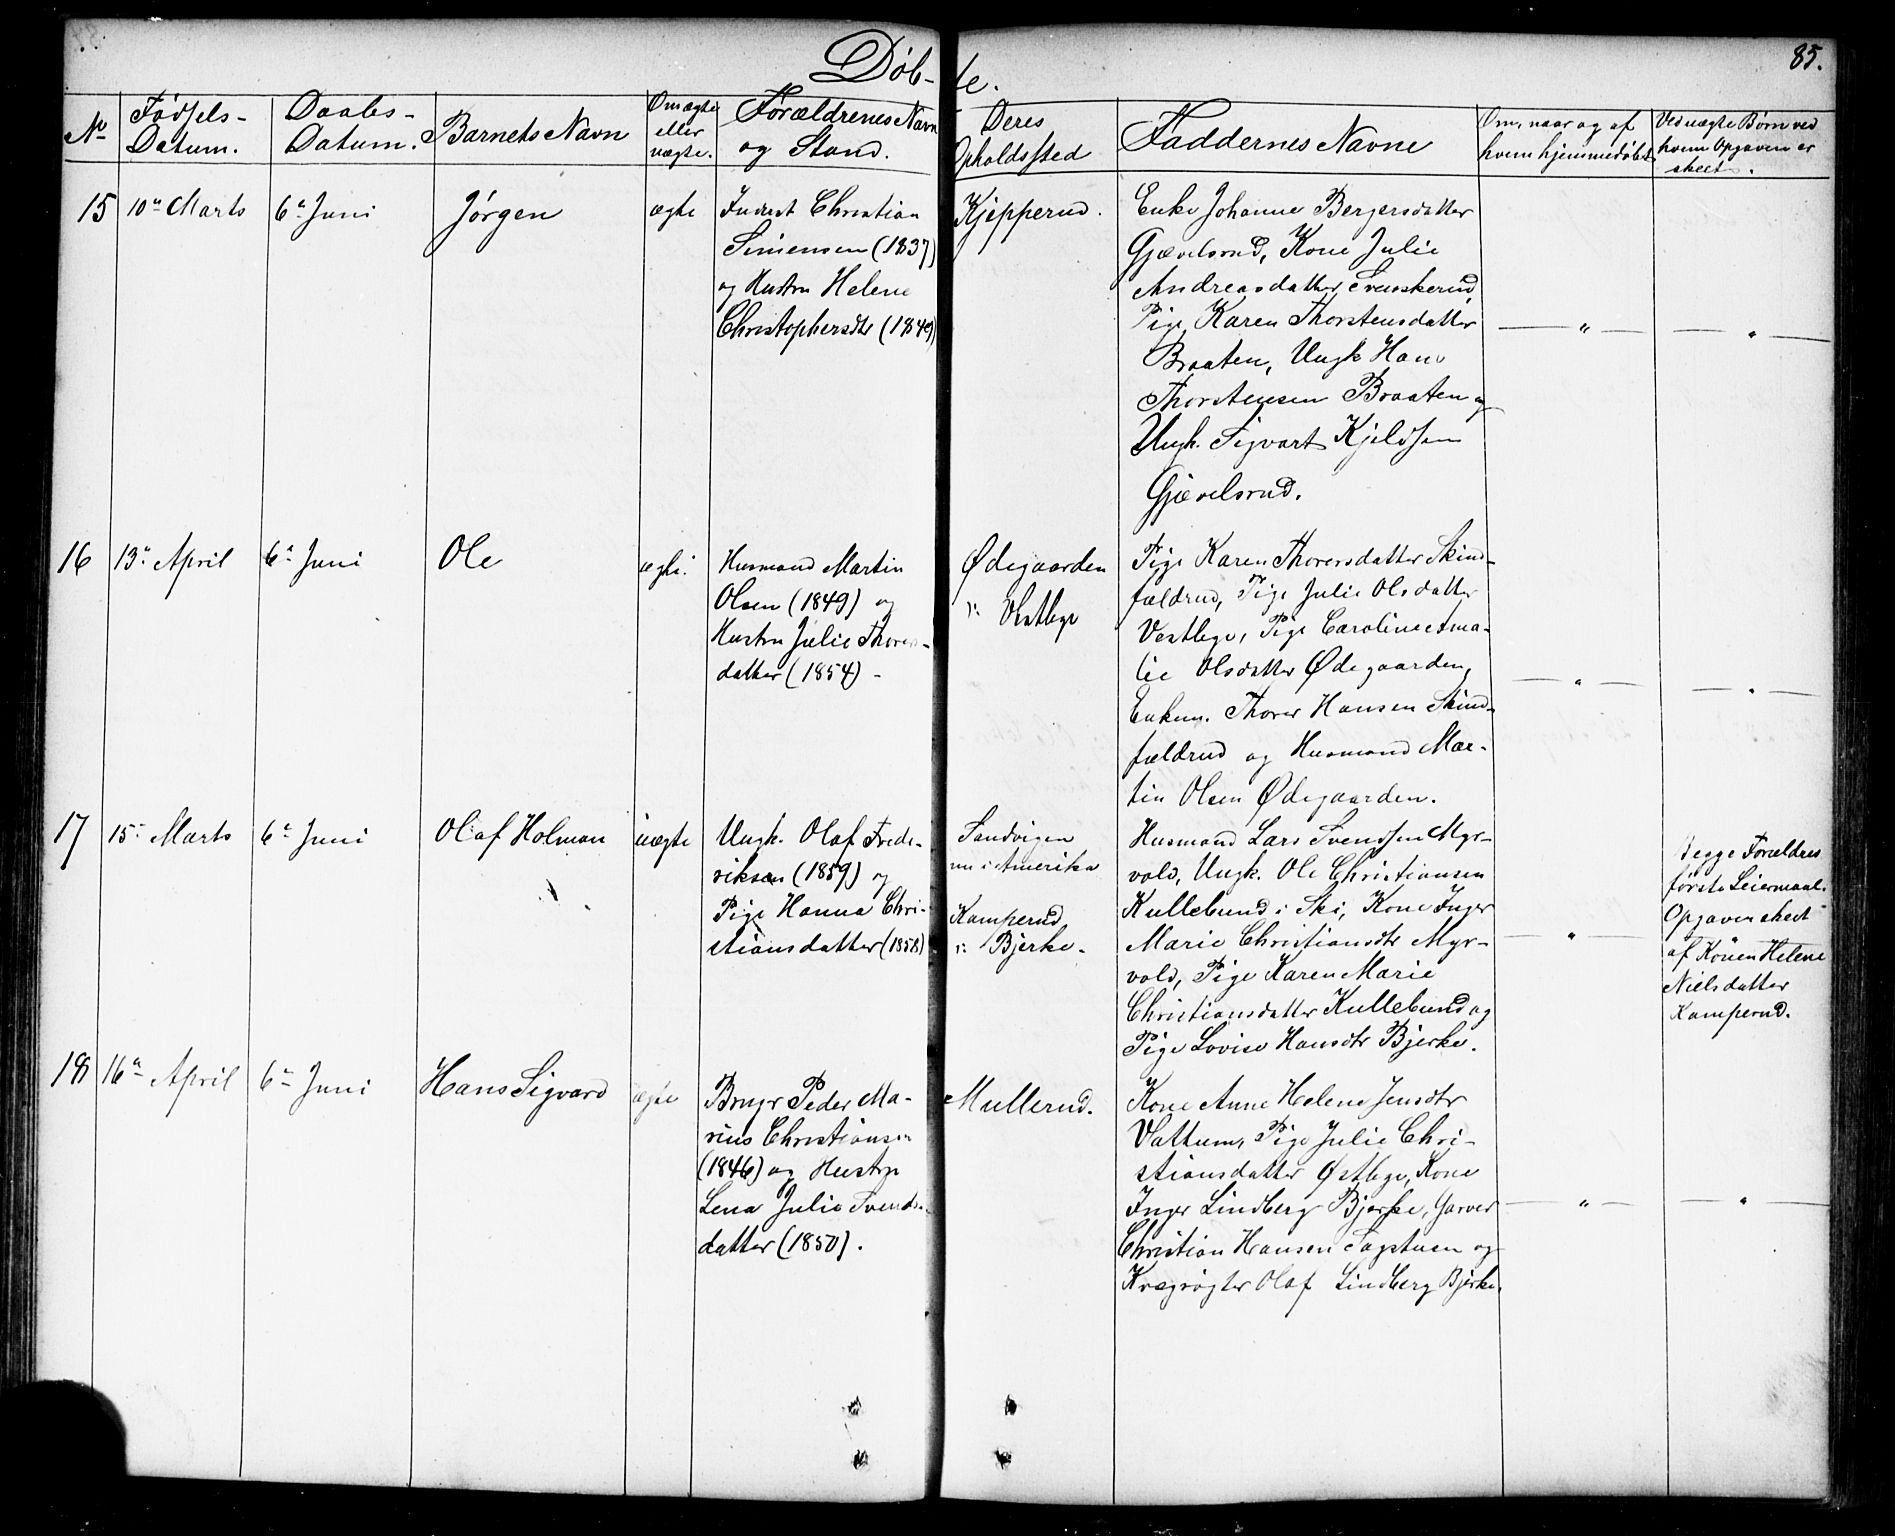 Døb-te.
85.
No
Fødsels-
Datum.
Daabs-
Datum.
Barnets Navn
Om ægte
eller
uægte.
Forældrenes Navn
og Stand.
Deres
Opholdssted
Faddernes Navne
Om, naar og af
hvem hjemmedøbt
Ved uægte Børn ved
hvem Opgaven er
skeet.
15
10de Marts
6te Juni
Jörgen
ægte
Inderst Christian
Simensen (1837)
og Hustru Helene
Christophersdtr (1849)
Kjepperud.
Enke Johanne Bergersdatter
Gjævelsrud, Kone Julie
Andreasdatter Svenskerud,
Pige Karen Thorstensdatter
Braaten, Ungk Hans
Thorstensen Braaten og
Ungk. Sigvart Kjeldsen
Gjævelsrud.
— " —
— " —
16
13de April
6te Juni
Ole
ægte.
Husmand Martin
Olsen (1849) og
Hustru Julie Thorers-
datter (1854) -
Ødegaarden
i: Vestbye
Pige Karen Thorersdatter Skind-
fældrud, Pige Julie Olsdatter
Vestbye, Pige Caroline Ama-
lie Olsdatter Ødegaarden,
Enkem. Thorer Hansen Skind-
fældrud og Husmand Mar-
tin Olsen Ødegaarden.
— " —
— " —
17
15de Marts
6te Juni
Olaf Holman
uægte
Ungk. Olaf Frede-
riksen (1859) og
Pige Hanna Chri-
stiansdatter (1858)
Sandvigen
nu i Amerika
Kamperud
i: Bjerke.
Husmand Lars Svendsen Myr-
vold, Ungk. Ole Christiansen
Kullebund i Ski, Kone Inger
Marie Christiansdtr Myr-
vold, Pige Karen Marie
Christiansdatter Kullebund og
Pige Lovise Hansdtr Bjerke.
— " —
Begge Forældres
første Leiermaal.
Opgaven skeet
af Konen Helene
Nielsdatter
Kamperud.
18
16de April
6te Juni
Hans Sigvard
ægte
Brugr Peder Ma-
rius Christiansen
(1846) og Hustru
Lena Julie Svends-
datter (1850).
Mullerud.
Kone Anne Helene Jensdtr
Vattum, Pige Julie Chri-
stiansdatter Østbye, Kone
Inger Lindberg Bjerke, Garver
Christian Hansen Sagstuen og
Kregrøgter Olaf Lindberg Bjerke.
— " —
— " —